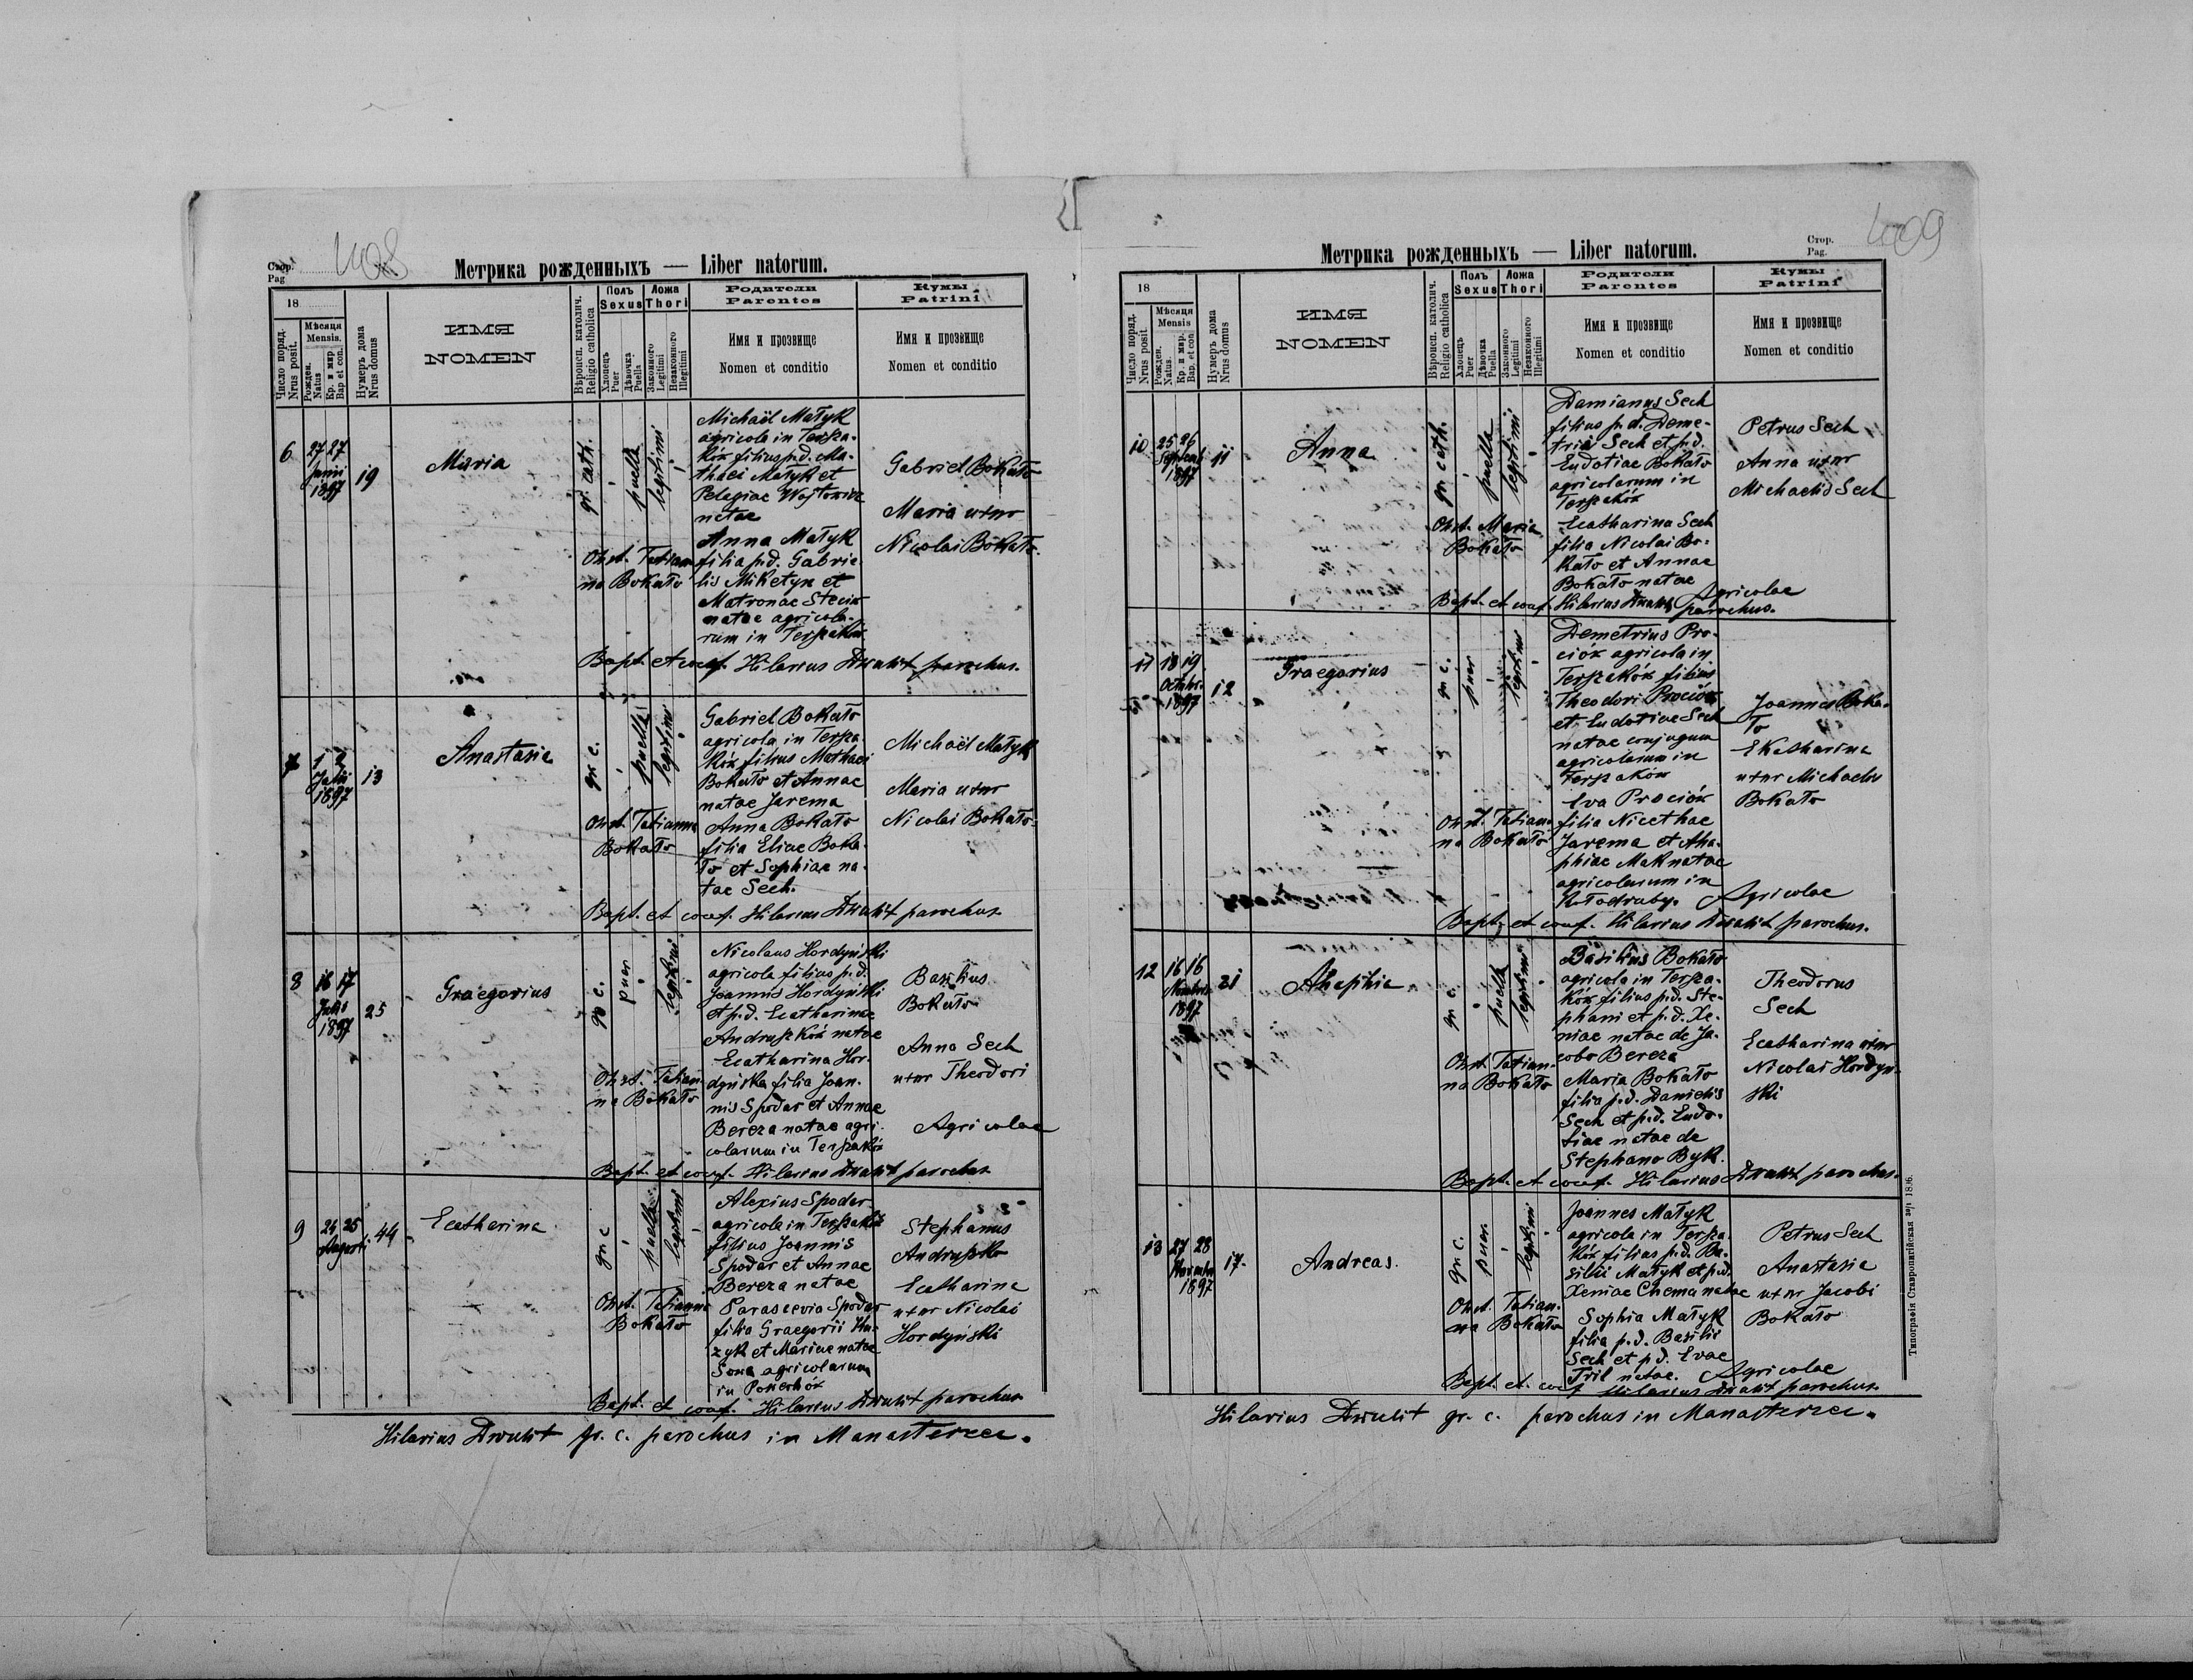 408
Стор.
Pag
Метрика рожденныхъ — Liber natorum.
18
Число поряд.
Nrus posit.
Мѣсяця
Mensis.
Рожден.
Natus
Кр. и мир.
Bap. et con.
Нумеръ дома
Nrus domus
ИМЯ
NOMEN
Вѣроисп. католич.
Religio catholica
Полъ
Sexus
Хлопецъ
Puer
Дѣвочка
Puella
Ложа
Thori
Законного
Legitimi
Незаконного
Illegitimi
Родители
Parentes
Имя и прозвище
Nomen et conditio
Кумы
Patrini
Имя и прозвище
Nomen et conditio
6
27 27
Junii
1897
19
Maria
gr. cath.
puella
legitimi
Michaël Matyk
agricola in Terpa-
kók filius p.d. Ma-
thaei Matyk et
Pelagiae Wojtowicz
natae
Anna Matyk
filia p.d. Gabrie-
lis Miketyn et
Matronae Steciu
natae agricola-
rum in Terpakók
Gabriel Bokało
Maria uxor
Nicolai Bokało.
Obst. Tatian-
na Bokało
Bapt. et conf. Hilarius Dwulit parochus.
7
1 2
Julii
1897
13
Anastasia
gr. c.
puella
legitimi
Gabriel Bokało
agricola in Terpa-
kók filius Mathaei
Bokało et Annae
natae Jarema
Anna Bokało
filia Eliae Boka-
ło et Sophiae na-
tae Sech.
Michaël Matyk
Maria uxor
Nicolai Bokało
Obst. Tatianna
Bokało
Bapt. et conf. Hilarius Dwulit parochus
8
16 17
Julii
1897
25
Graegorius
gr. c.
puer
legitimi
Nicolaus Hordyński
agricola filius p.d.
Joannis Hordyński
et p.d. Ecatharinae
Andrupkók natae
Ecatharina Hor-
dyńska filia Joan-
nis Spodar et Annae
Bereza natae agri-
colarum in Terpakók
Basilius
Bokało
Anna Sech
uxor Theodori
Agricolae
Obst. Tatian-
na Bokało
Bapt. et conf. Hilarius Dwulit parochus
9
24 25
Augusti
44
Ecatharina
gr. c
puella
legitimi
Alexius Spodar
agricola in Terpakók
filius Joannis
Spodar et Annae
Bereza natae
Parascevia Spodar
filia Graegorii Hu-
zyk et Mariae natae
Sowa agricolarum
in
Stephanus
Andrupko
Ecatharina
uxor Nicolai
Hordyński
Obst. Tatianna
Bokało
Bapt. et conf. Hilarius Dwulit parochus
Hilarius Dwulit gr. c. parochus in Manasterzec.
409
Стор.
Pag.
Метрика рожденныхъ — Liber natorum.
18
Число поряд.
Nrus posit.
Мѣсяця
Mensis
Рожден.
Natus.
Кр. и мир.
Bap. et con.
Нумеръ дома
Nrus domus
ИМЯ
NOMEN
Вѣроисп. католич.
Religio catholica
Полъ
Sexus
Хлопецъ
Puer
Дѣвочка
Puella
Ложа
Thori
Законного
Legitimi
Незаконного
Illegitimi
Родители
Parentes
Имя и прозвище
Nomen et conditio
Кумы
Patrini
Имя и прозвище
Nomen et conditio
10
25 26
Septemb
1897
11
Anna
gr. cath.
puella
legitimi
Damianus Sech
filius p.d. Deme-
trii Sech et p.d.
Eudotiae Bokało
agricolarum in
Terpakók
Ecatharina Sech
filia Nicolai Bo-
kało et Annae
Bokało natae
Petrus Sech
Anna uxor
Michaelis Sech
Agricolae
Obst. Maria
Bokało
Bapt. et conf. Hilarius Dwulit parochus.
11
18 19
Octobr.
1897
12
Graegorius
gr. c.
puer
legitimi
Demetrius Pro-
ciók agricola in
Terpakók filius
Theodori Prociók
et Eudotiae Sech
natae conjugum
agricolarum in
Terpakók
Eva Prociók
filia Nicethae
Jarema et Aha-
phiae Mak natae
agricolarum in
Kołodruby.
Joannes Boka-
ło
Ekatharina
uxor Michaelis
Bokało
Agricolae
Obst. Tatian-
na Bokało
Bapt. et conf. Hilarius Dwulit parochus.
12
16 16
1897
21
Ahaphia
gr. c.
puella
legitimi
Basilius Bokało
agricola in Terpa-
kók filius p.d. Ste-
phani et p.d. Xe-
niae natae de Ja-
cobo Bereza
Maria Bokało
filia p.d. Danielis
Sech et p.d. Eudo-
tiae natae de
Stephano Byk.
Theodorus
Sech
Ecatharina uxor
Nicolai Hordyń-
ski
Obst. Tatian-
na Bokało
Bapt. et conf. Hilarius Dwulit parochus.
13
27 28
Novembr
1897
17.
Andreas.
gr. c.
puer.
legitimi
Joannes Matyk
agricola in Terpa-
kók filius p.d. Ba-
silii Matyk et p.d.
Xeniae Chema natae
Sophia Matyk
filia p.d. Basilii
Sech et p.d. Evae
Tril natae.
Petrus Sech
Anastasia
uxor Jacobi
Bokało
Agricolae
Obst. Tatian-
na Bokało
Bapt. et. conf Hilarius Dwulit parochus.
Hilarius Dwulit gr. c. parochus in Manasterzec.
Типографія Ставропигійская